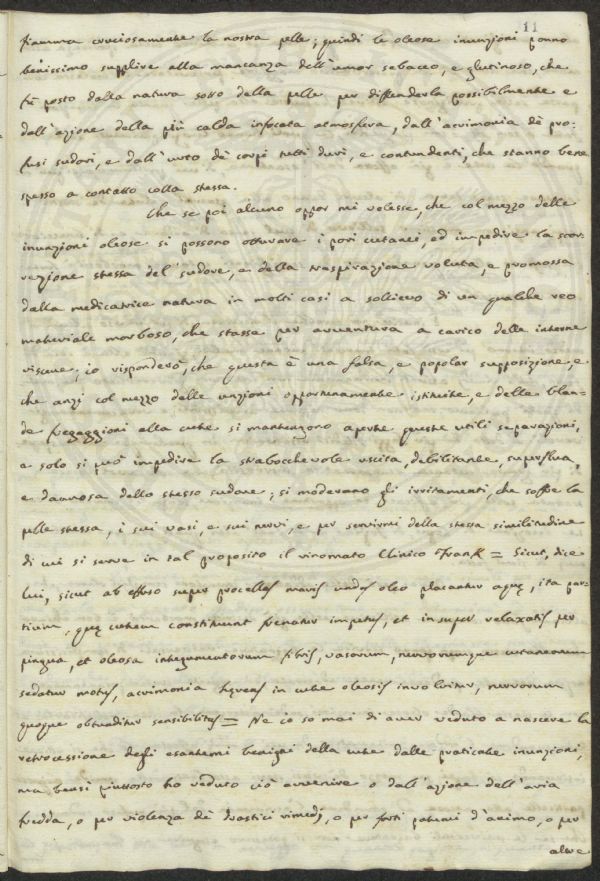 11
fiamma cruciosamente la nostra pelle; quindi le oleose inunzioni ponno
benissimo supplire alla mancanza dell'umor sebaceo, e glutinoso, che
fù posto dalla natura sotto della pelle per diffenderla possibilmente e
dall'azione della più calda infocata atmosfera, dall'acrimonia dè pro=
fusi sudori, e dall'urto dè corpi tutti duri, e contundenti, che stanno bene
spesso a contatto colla stessa.
Che se poi alcuno oppor mi volesse, che col mezzo delle
inunzioni oleose si possono otturare i pori cutanei, ed impedire la scor=
rezione stessa del sudore, e della traspirazione voluta, e promossa
dalla medicatrice natura in molti casi a sollievo di un qualche reo
materiale morboso, che stasse per avventura a carico delle interne
viscere; io risponderò, che questa è una falsa, e popolar supposizione, e
che anzi col mezzo delle unzioni opportunamente istituite, e delle blan=
de fregaggioni alla cute si mantengono aperte queste utili separazioni,
e solo si può impedire la strabocchevole uscita, debilitante, superflua,
e dannosa dello stesso sudore; si moderano gli irritamenti, che soffre la
pelle stessa, i sui vasi, e sui nervi, e per servirmi della stessa similitudine
di cui si serve in tal proposito il rinomato Clinico Frank = Sicut, dice
lui, sicut ab effuso super procellas maris undas oleo placantur aquę, ita par=
tium, quę cutem constituunt frenatur impetus, et insuper relaxatis per
pingua, et oleosa integumentorum fibris, vasorum, nervorumque cutaneorum
sedatur motus, acrimonia hęrens in cute oleosis involvitur, nervorum
quoque obtunditur sensibilitas = Ne io so mai di aver veduto a nascere la
retrocessione degli esantemi benigni della cute dalle praticate inunzioni,
ma bensì piuttosto ho veduto ciò avvenire o dall'azione dell'aria
fredda, o per violenza dè drastici rimedj, o per forti patemi d'animo, o per
altre